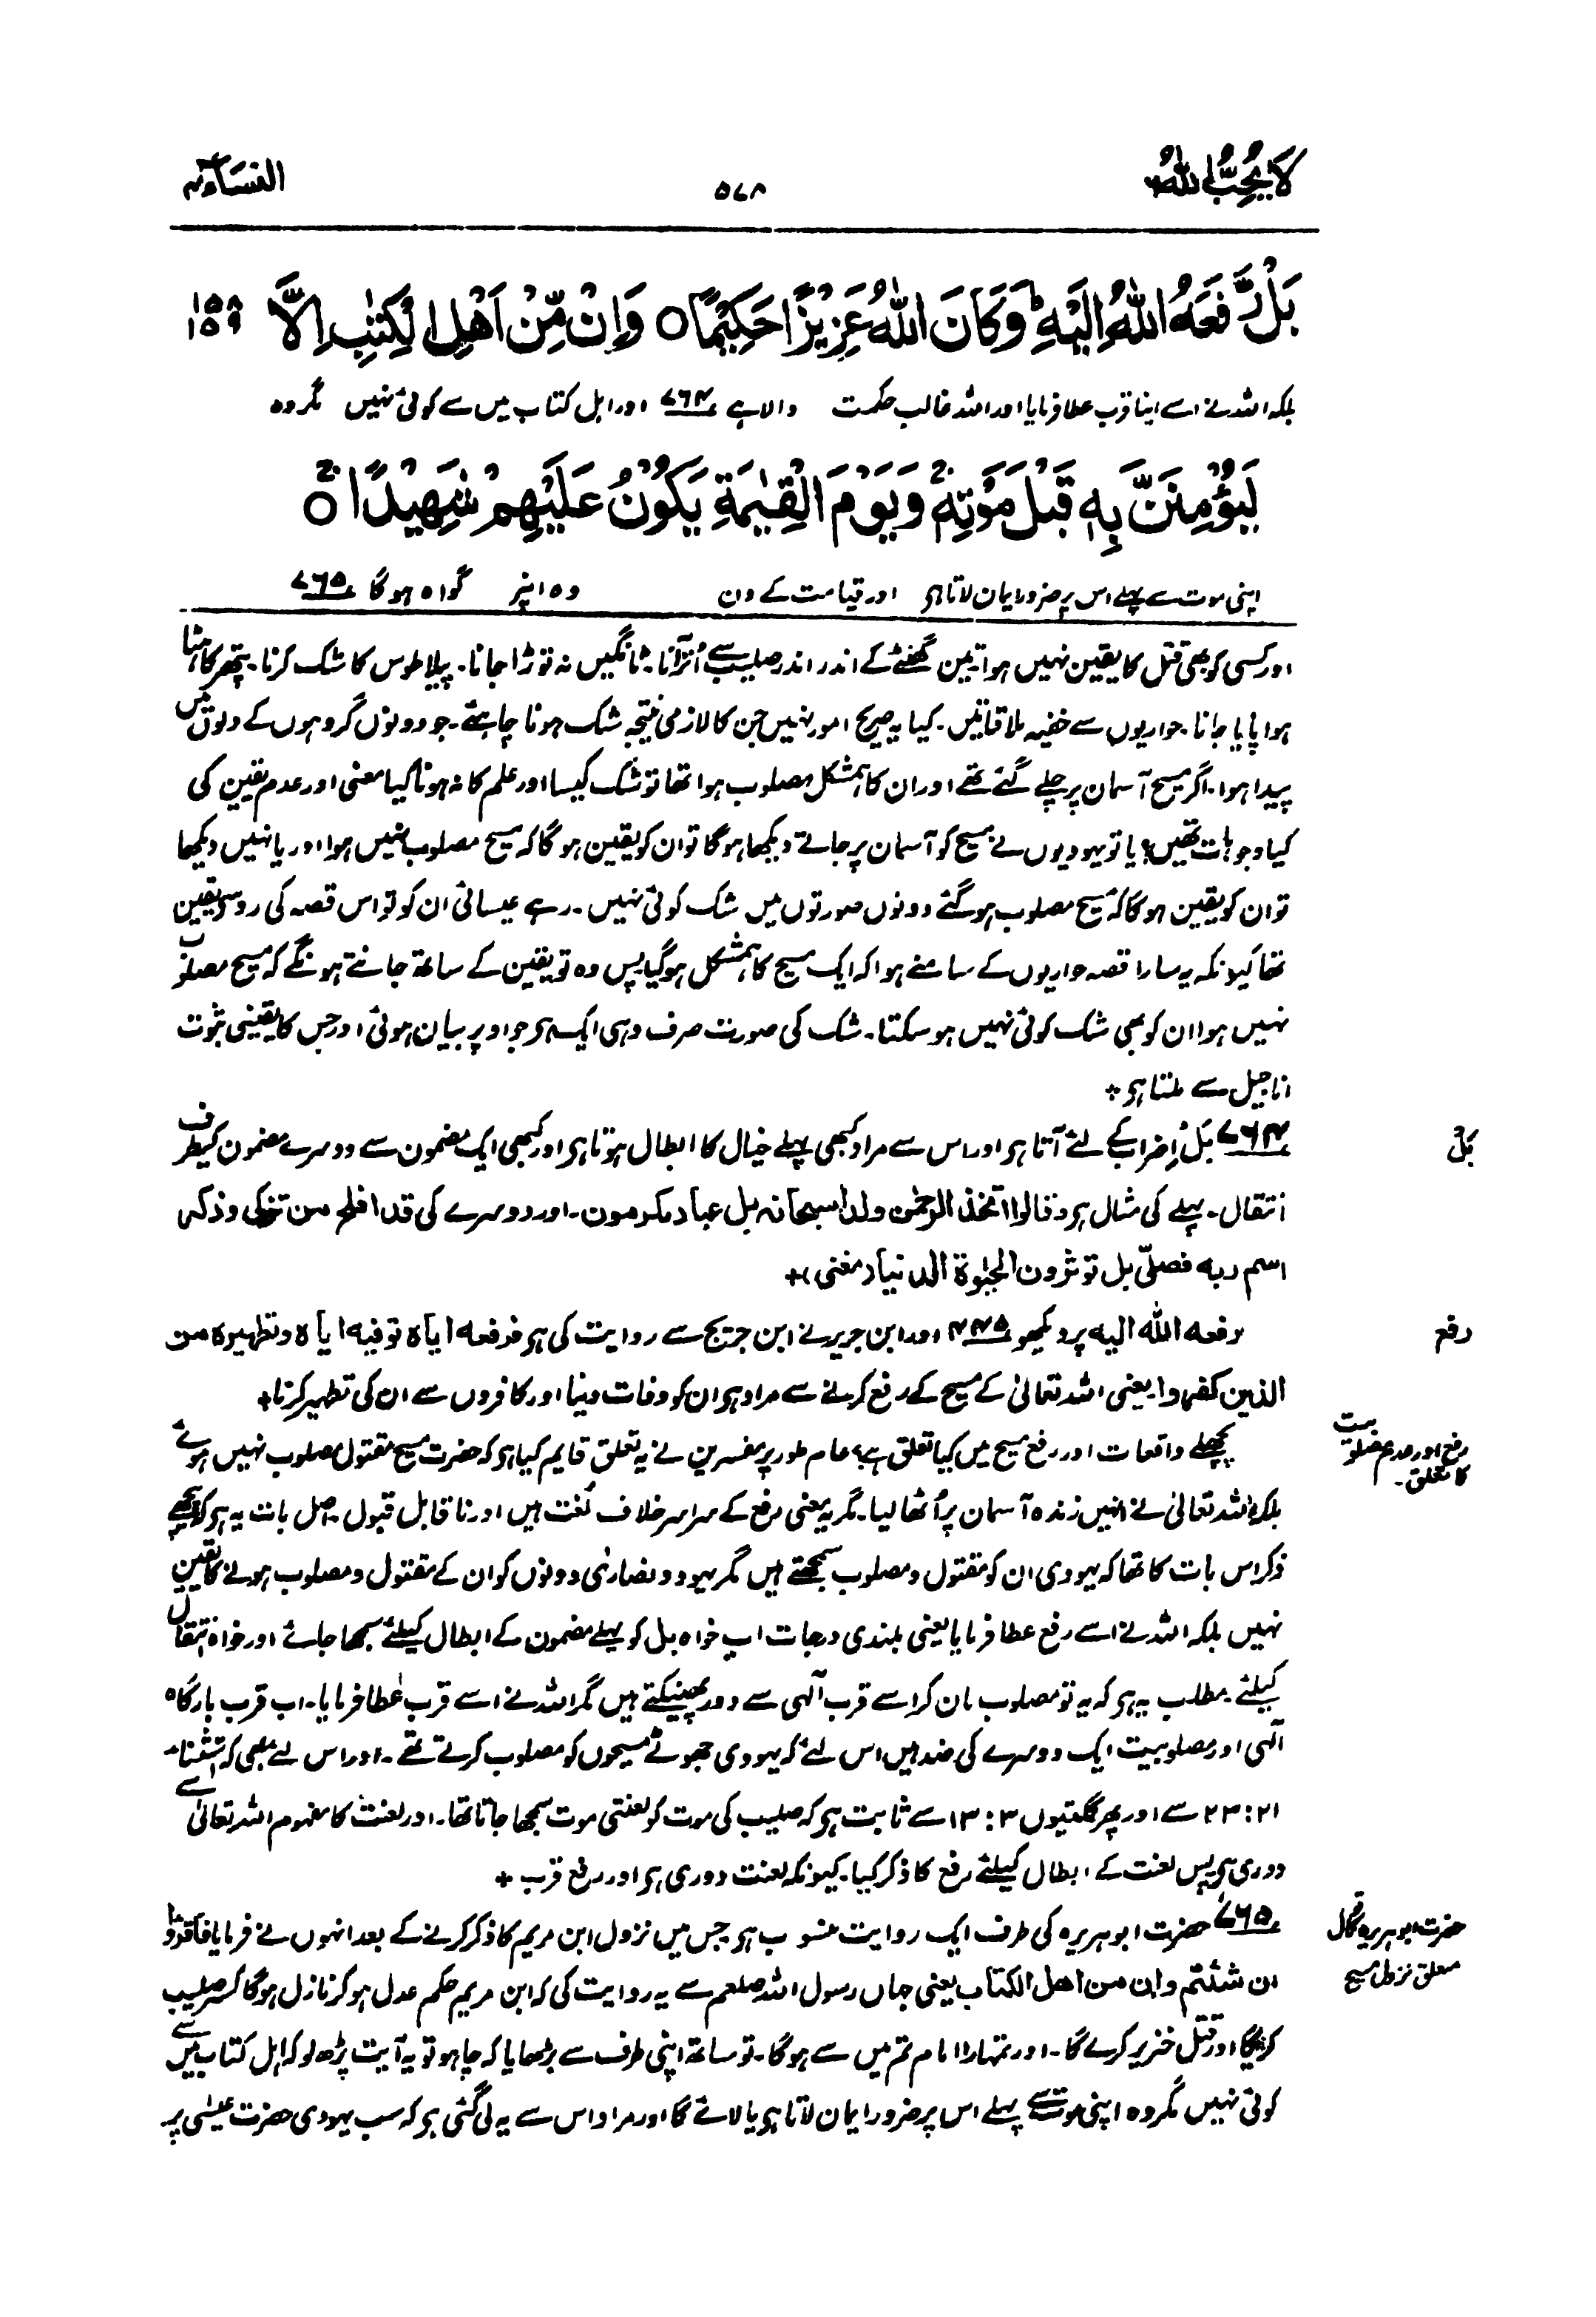 لَا يُحِبُّ اللّٰهُ
۵۷۸
النساء ۴
بَلْ رَّفَعَهُ اللّٰهُ اِلَيْهِ ؕ وَكَانَ اللّٰهُ عَزِيْزًا حَكِيْمًا ○ وَاِنْ مِّنْ اَهْلِ الْكِتٰبِ اِلَّا
۱۵۸
۱۵۹
بلکہ اللہ نے اسے اپنا قرب عطا فرمایا اور اللہ غالب حکمت والا ہے ۷۶۴ اور اہل کتاب میں سے کوئی نہیں مگر وہ
لَيُؤْمِنَنَّ بِهٖ قَبْلَ مَوْتِهٖ ۚ وَيَوْمَ الْقِيٰمَةِ يَكُوْنُ عَلَيْهِمْ شَهِيْدًا ○
اپنی موت سے پہلے اس پر ضرور ایمان لاتا ہو اور قیامت کے دن وہ انپر گواہ ہوگا ۷۶۵
اور کسی کو بھی قتل کا یقین نہیں ہوا۔ تین گھنٹے کے اندر اندر صلیب سے اُتر آنا۔ ٹانگیں نہ توڑا جانا۔ پیلاطوس کا شک کرنا۔ پتھر کا ہٹا
ہوا پایا جانا۔ حواریوں سے خفیہ ملاقاتیں۔ کیا یہ صریح امور نہیں جن کا لازمی نتیجہ شک ہونا چاہئے۔ جو دونوں گروہوں کے دلوں میں
پیدا ہوا۔ اگر مسیح آسمان پر چلے گئے تھے اور ان کا ہمشکل مصلوب ہوا تھا تو شک کیسا اور علم کا نہ ہونا کیا معنی اور عدم یقین کی
کیا وجوہات تھیں؟ یا تو یہودیوں نے مسیح کو آسمان پر جاتے دیکھا ہوگا تو ان کو یقین ہوگا کہ مسیح مصلوب نہیں ہوا اور یا نہیں دیکھا
تو ان کو یقین ہوگا کہ مسیح مصلوب ہوگئے دونوں صورتوں میں شک کوئی نہیں۔ رہے عیسائی ان کو تو اس قصہ کی رو سے یقین
تھا کیونکہ یہ سارا قصہ حواریوں کے سامنے ہوا کہ ایک مسیح کا ہمشکل ہوگیا پس وہ تو یقین کے ساتھ جانتے ہونگے کہ مسیح مصلوب
نہیں ہوا ان کو بھی شک کوئی نہیں ہوسکتا۔ شک کی صورت صرف وہی ایک ہو جو اوپر بیان ہوئی اور جس کا یقینی ثبوت
اناجیل سے ملتا ہو +
بل
۷۶۴ بَلْ اِضراب کے لئے آتا ہو اور اس سے مراد کبھی پہلے خیال کا ابطال ہوتا ہو اور کبھی ایک مضمون سے دوسرے مضمون کیطرف
انتقال۔ پہلے کی مثال ہو وقالوا اتخذ الرحمٰن ولدا سبحانه بل عباد مكرمون۔ اور دوسرے کی قد افلح من تزكى وذكر
اسم ربه فصلّى بل تؤثرون الحيٰوة الدنيا (مغنی) +
رفع
رفعه الله اليه پر دیکھو ۴۴۵ اور ابن جریر نے ابن جریج سے روایت کی ہو فرفعه اياه توفيه اياه وتطهيره من
الذين كفروا یعنی اللہ تعالیٰ کے مسیح کے رفع کرنے سے مراد ہو ان کو وفات دینا اور کافروں سے ان کی تطہیر کرنا +
رفع اور عدم مصلوبیت
کا تعلق۔
پچھلے واقعات اور رفع مسیح میں کیا تعلق ہے؟ عام طور پر مفسرین نے یہ تعلق قایم کیا ہو کہ حضرت مسیح مقتول مصلوب نہیں ہوئے
بلکہ اللہ تعالیٰ نے انہیں زندہ آسمان پر اُٹھا لیا۔ مگر یہ معنی رفع کے سراسر خلاف لغت ہیں اور ناقابل قبول۔ اصل بات یہ ہو کہ پیچھے
ذکر اس بات کا تھا کہ یہودی ان کو مقتول و مصلوب سمجھتے ہیں مگر یہود و نصاریٰ دونوں کو ان کے مقتول و مصلوب ہونے کا یقین
نہیں بلکہ اللہ نے اسے رفع عطا فرمایا یعنی بلندی درجات اب خواہ بل کو پہلے مضمون کے ابطال کیلئے سمجھا جائے اور خواہ انتقال
کیلئے مطلب یہ ہو کہ یہ تو مصلوب مان کر اسے قرب آلہی سے دور پھینکتے ہیں مگر اللہ نے اسے قرب عطا فرمایا۔ اب قرب بارگاہ
آلہی اور مصلوبیت ایک دوسرے کی ضد ہیں اس لئے کہ یہودی جھوٹے مسیحوں کو مصلوب کرتے تھے۔ اور اس لئے بھی کہ استثناء
۲۱ : ۲۳ سے اور پھر گلتیوں ۳ : ۱۳ سے ثابت ہو کہ صلیب کی موت کو لعنتی موت سمجھا جاتا تھا۔ اور لعنت کا مفہوم اللہ تعالیٰ سے
دوری ہو پس لعنت کے ابطال کیلئے رفع کا ذکر کیا۔ کیونکہ لعنت دوری ہو اور رفع قرب +
حضرت ابوہریرہ کا قول
متعلق نزول مسیح
۷۶۵ حضرت ابوہریرہ کی طرف ایک روایت منسوب ہو جس میں نزول ابن مریم کا ذکر کرنے کے بعد انہوں نے فرمایا فاقرؤا
ان شئتم وان من اهل الكتاب یعنی جہاں رسول اللہ صلعم سے یہ روایت کی کہ ابن مریم حکم عدل ہوکر نازل ہوگا کسر صلیب
کریگا اور قتل خنزیر کرے گا۔ اور تمہارا امام تم میں سے ہوگا۔ تو ساتھ اپنی طرف سے بڑھایا کہ چاہو تو یہ آیت پڑھ لو کہ اہل کتاب میں سے
کوئی نہیں مگر وہ اپنی موت سے پہلے اس پر ضرور ایمان لاتا ہو یا لائے گا اور مراد اس سے یہ لی گئی ہو کہ سب یہودی حضرت عیسٰی پر